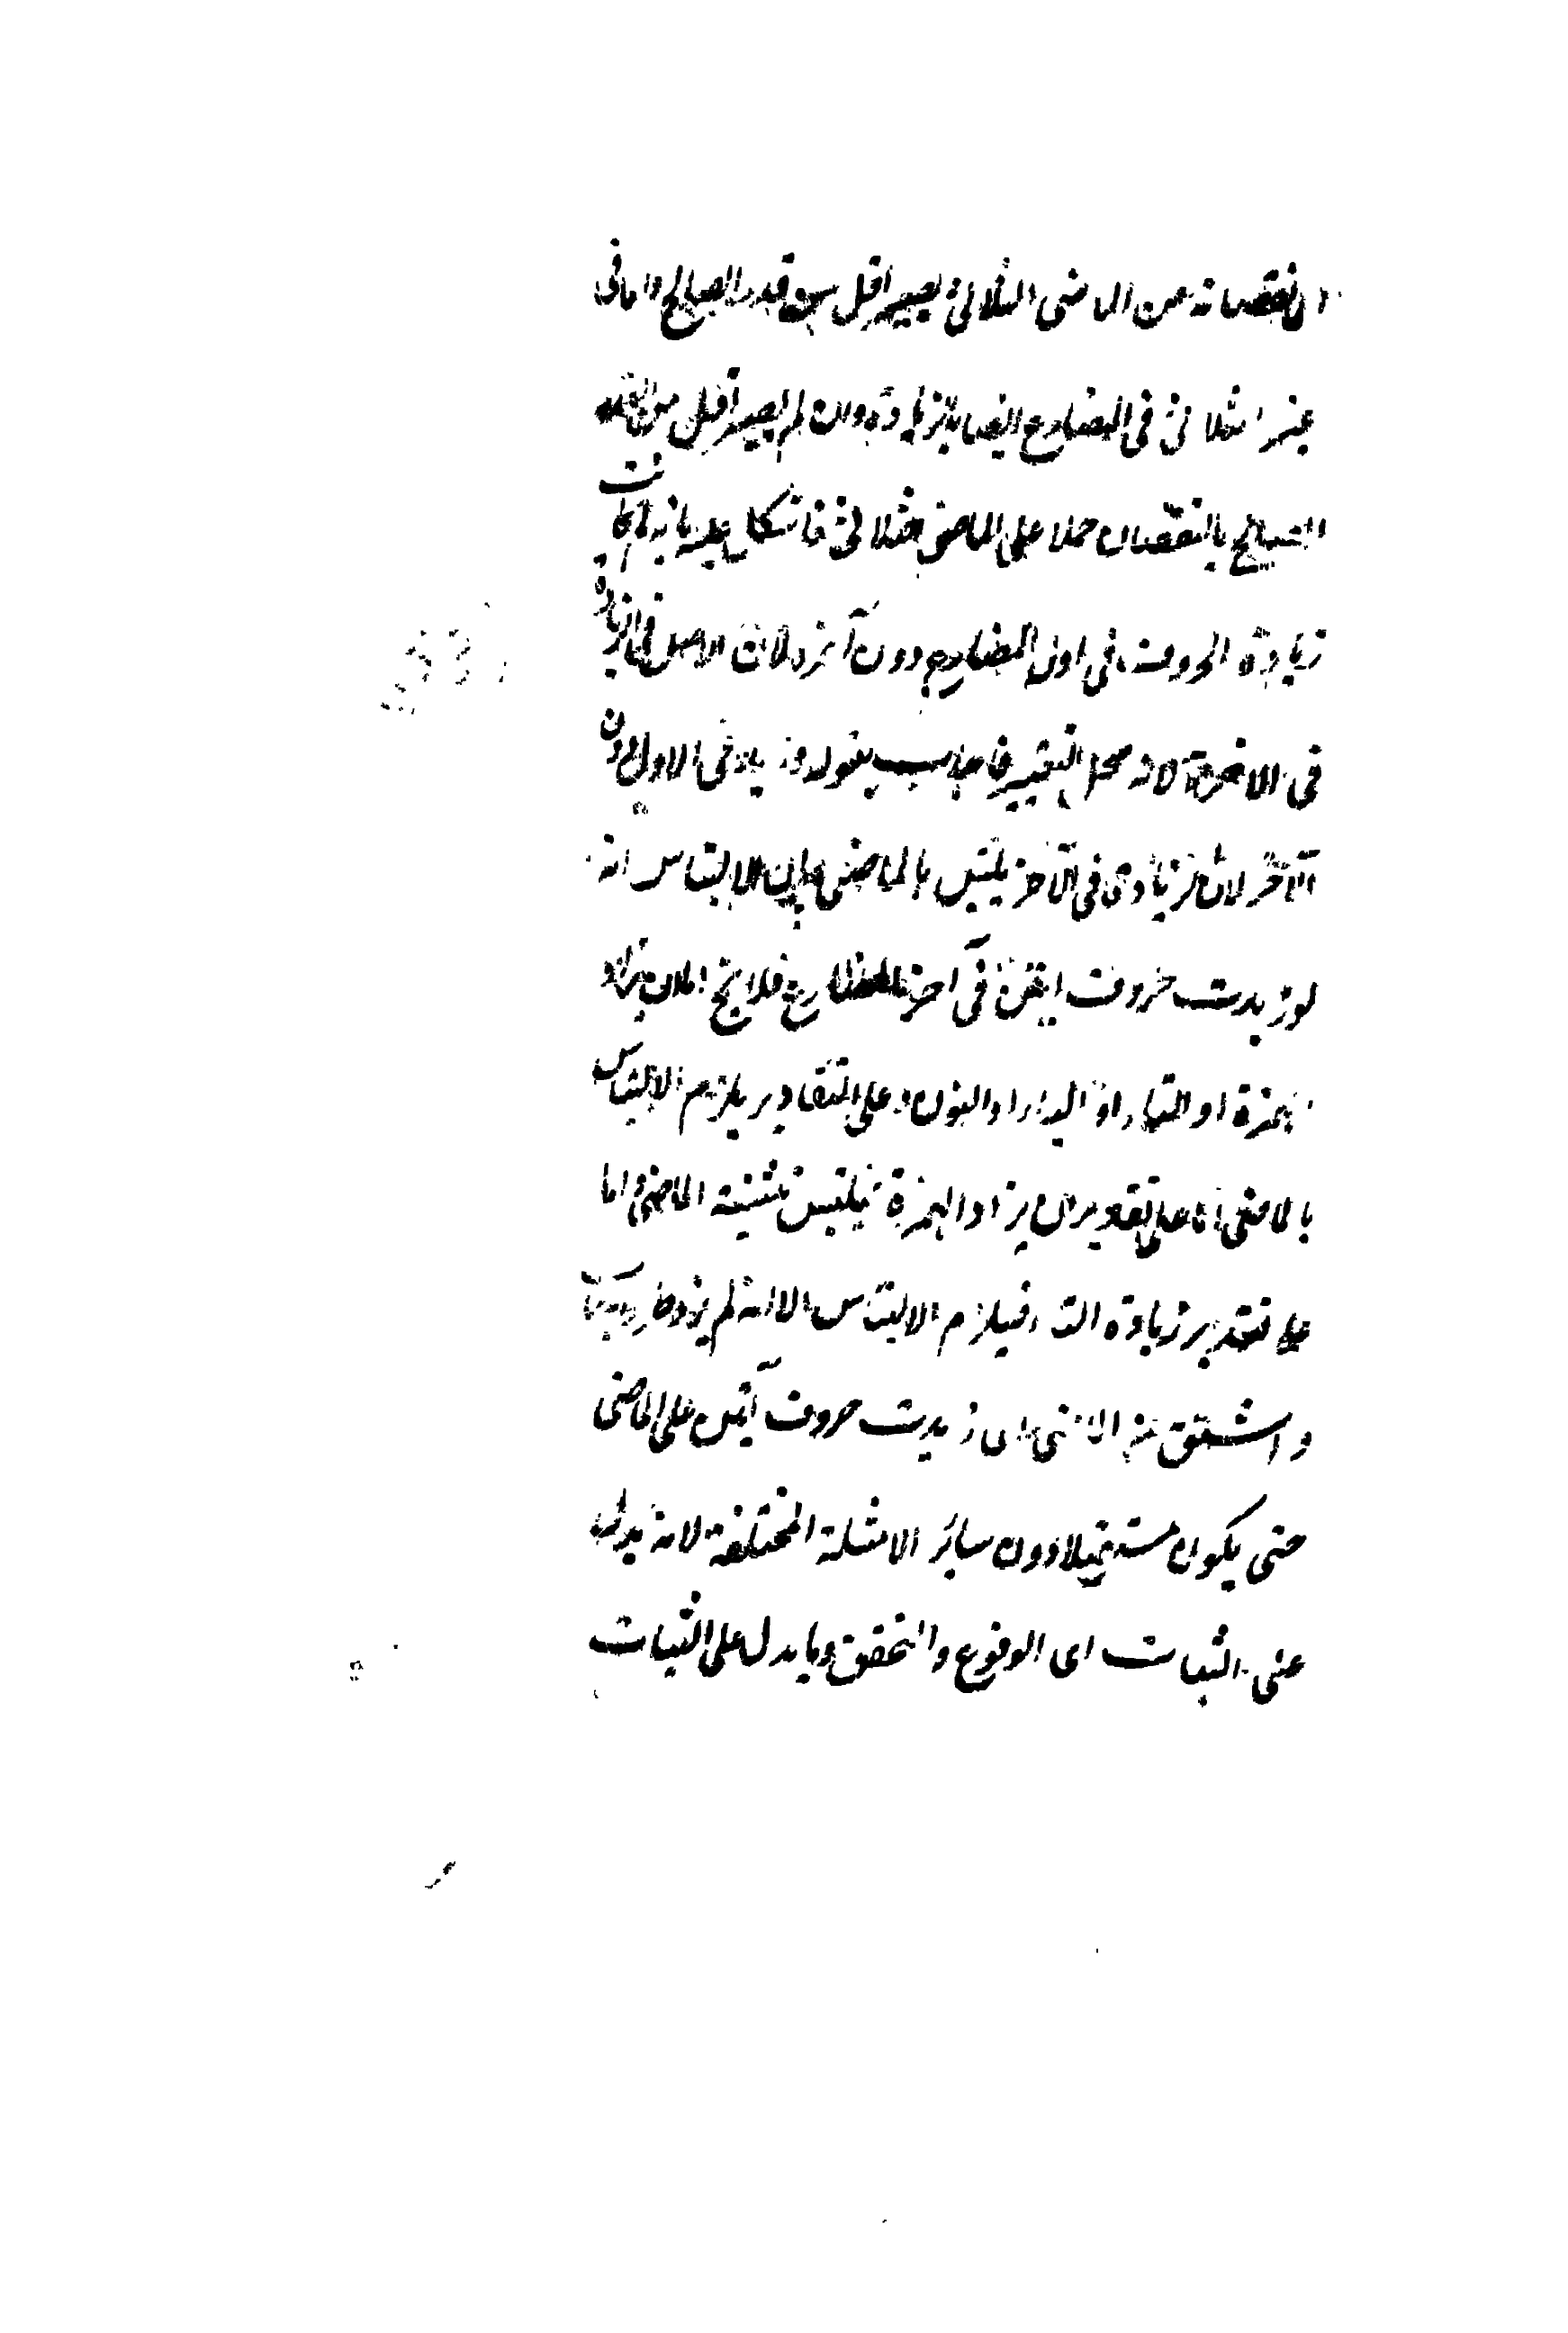 ان نقصانه من الماضى الثلاثى يصير اقل من قدر الصالح واما فى
غير الثلاثى فى المضارع ايضا بالزيادة وان لم يصير اقل من القدر
الصالح بالنقصان حملا على الماضى الثلاثى فاشكل عليه بانه لم كانت
زيادة الحروف فى اول المضارع دون آخره لان الاصل فى الزيادة
فى الاخر لانه محل التغيير فاجاب بقوله وزيد فى الاول دون
الآخر لان الزيادة فى الآخر يلتبس بالماضى بيان الالتباس انه
لو زيدت حروف اتين فى آخر المضارع فلا يخ اما ان يزاد
الهمزة او التاء او الياء او النون وعلى التقادير يلزم الالتباس
بالماضى اما على تقدير ان يزاد الهمزة فيلتبس بتثنية الماضى واما
على تقدير زيادة التاء فيلزم الالتباس الا انه لم يزد
واشتق من الماضى اى زيدت حروف اتين على الماضى
حتى يكون مستقبلا دون سائر الامثلة المختلفة لانه يدل
على الثبات اى الوقوع والتحقق وما يدل على الثبات